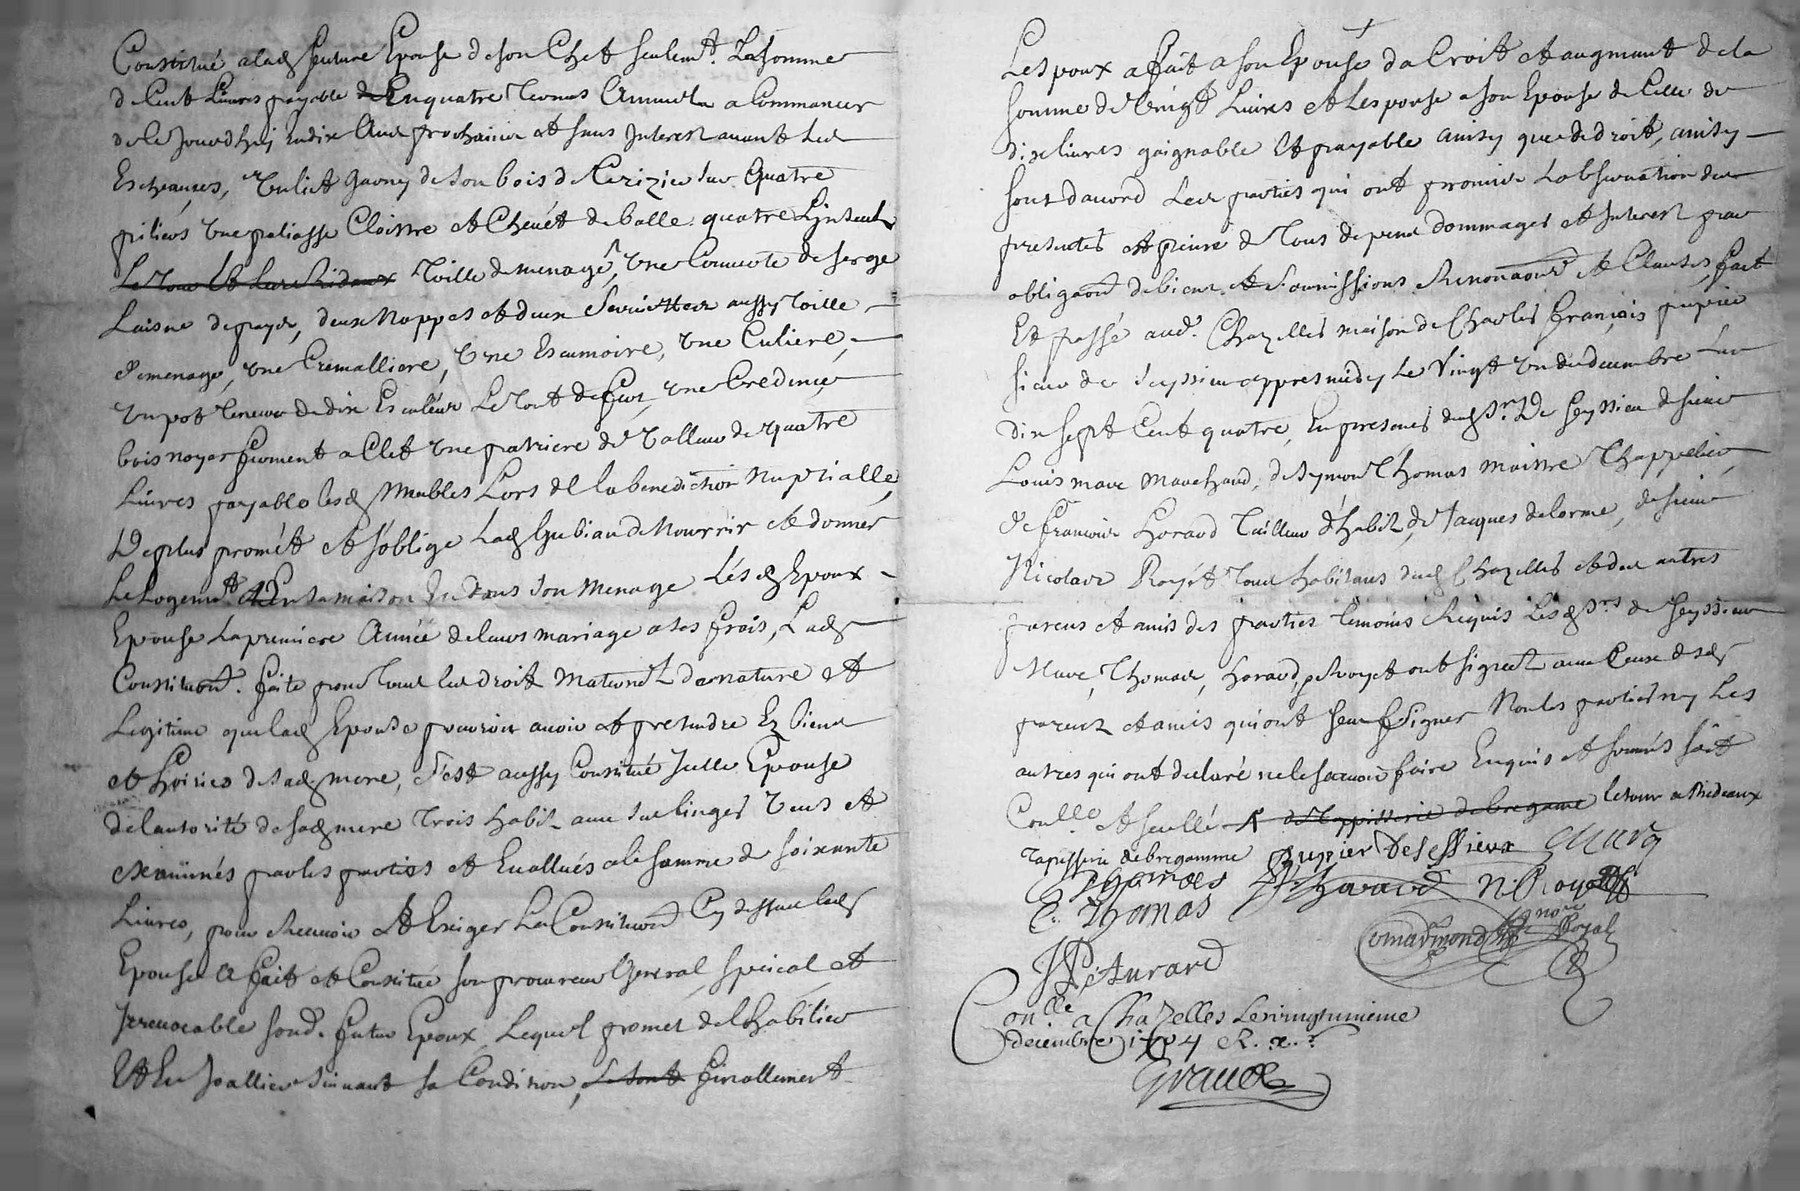 Constitué a lad future Epouse de son Chef seulemt. La somme
de Cent Livres payable de En quatre Termes Annuels a Commancer
de ce Jourdhuy en dix Ans prochains et sans Interest avant les
Escheances, Un lict garny de son bois de Cerizier sur Quatre
piliers Une paliasse Cloistre et Chevét de balle quatre Linseuls
Le Tour et les Rideaux Toille de menage, Une Couverte de serge
Laisne de payis, deux Nappes et deux Serviettes aussy Toille
de menage, une Cremalliere, Une Escumoire, une Culiere,
Un pot Teneur de dix Escuéles Le Tout de fer, une Credence
bois noyer fermant a Clef Une patriere de Valleur de quatre
Livres payable lesd Meubles Lors de la benediction Nuptialle,
De plus promét et s'oblige Lad Gubian de Nourrir et donner
Le Logemt. En sa maison et dans son Menage Lésd Epoux
Epouse La premiere Année de leurs mariage a ses frois, Lad
Constituon. faite pour Tous les droit Maternel de nature et
Legitime que lad Epouse pourroit avoir et pretendre Ez biens
et hoiries de sad mere, s'est aussy Constitué Jcelle Epouse
de lautorité de sad mere Trois habits avec ses linges Veus et
examinés par les parties et Evallués a la somme de soixante
Livres, pour Recevoir et Exiger La Constituon Cy dessus lad
Epouse a fait et Constitué son procureur General special et
Jrrevocable sond. futur Epoux Lequel promet de l'habilier
Et En Joallier suivant sa Condition, Le tout finallement
Lespoux a fait a son Epouse da Croit et augmant de la
somme de Vingt Livres et Lespouse a son Epouse de Celle de
dix livres gaignable et payable ainsy que de droit, ainsy
sont daccord Les parties qui ont promis L'observation des
presentes a peine de Tous depens dommages et Interest par
obligaon de biens et soumissions Renonaons et Clauses, fait
Et passé aud. Chazelles maison de Charles françois pupier
sieur de Seyssieu appres midy Le Vingt Un decembre Lan
dix sept Cent quatre, En presences dud Sr. De Seyssieu de sieur
Louis mave Marchand, de Symon Thomas maistre Chappelier,
de francois horard Tailleur d'habits, de Jacques delorme, de sieur
Nicolas Royét Tous habitans dud Chazelles et des autres
parens et amis des parties temoins Requis Lesd Srs de Seyssieu
Mave, Thomas, horard, Royet ont signez avec Ceux desd
parents et amis qui ont sceu signer Non les parties ny Les
autres qui ont declaré ne le scavoir faire Enquis et sommés soit
Conlle. et scellé et Tappisserie de bregame le tour a Rideaux
Tapisserie de bregamme pupier De seyssieux Mave
Thomas horard N. Royet
C. Thomas
Comarmond nore Royal
J P. Aurard
Conlle. a Chazelles Le vingtunieme
decembre 1704 R. x. s
Graude